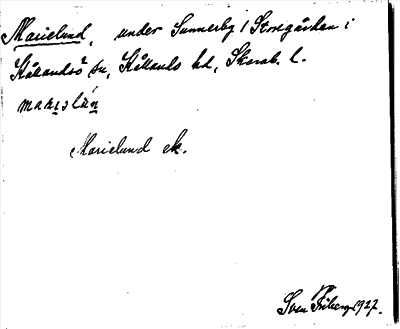 Marielund, under Sunnerby 1 Storegården i
Kållandsö sn, Kållands hd, Skarab. l.
marıslún
Marielund ek.
Sven Friberg 1927.